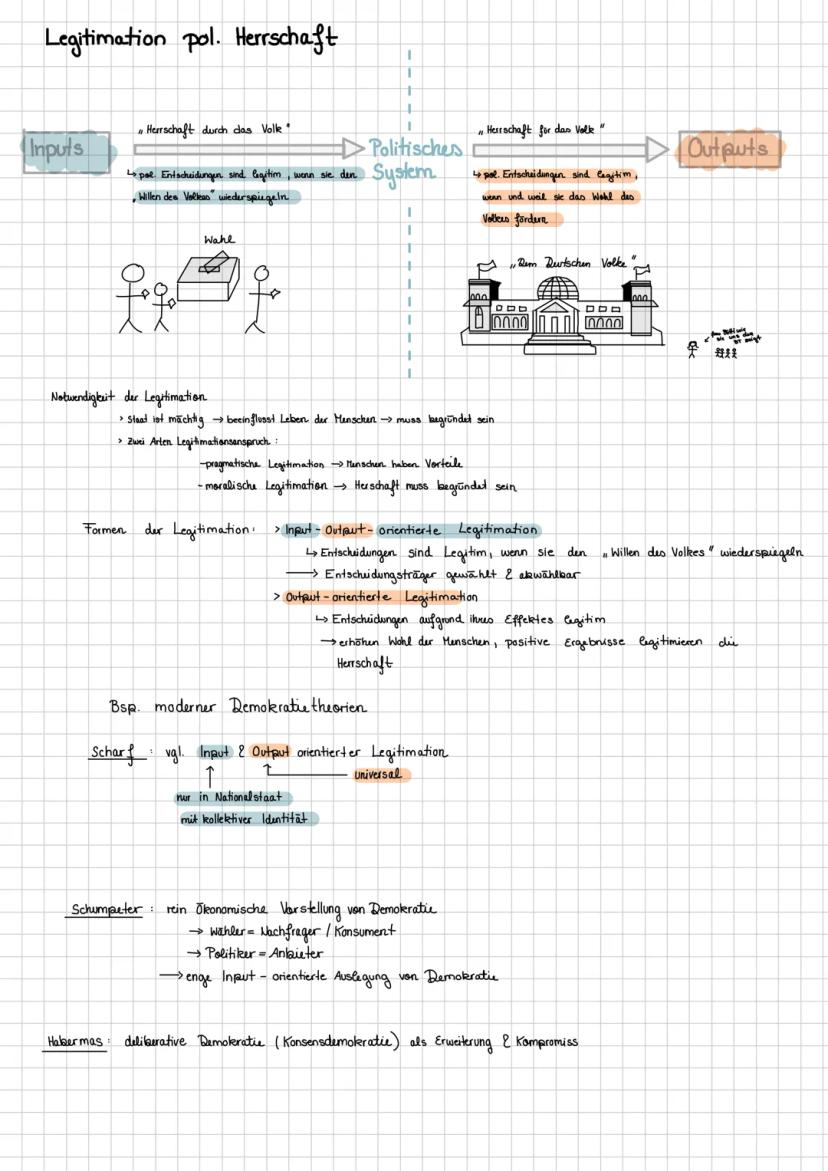 Legitimation pol. Herrschaft
Inputs
„Herrschaft durch das Volk"
Politisches
System
„Herrschaft für das Volk"
Outputs
↳ pol. Entscheidungen sind legitim, wenn sie den
„Willen des Volkes" wiederspiegeln
↳ pol. Entscheidungen sind legitim,
wenn und weil sie das Wohl des
Volkes fördern
Wahl
„Dem Deutschen Volke"
Notwendigkeit der Legitimation
> Staat ist mächtig → beeinflusst Leben der Menschen → muss begründet sein
> Zwei Arten Legitimationsanspruch :
-pragmatische Legitimation → Menschen haben Vorteile
- moralische Legitimation → Herschaft muss begründet sein
Formen der Legitimation: > Input - Output - orientierte Legitimation
↳ Entscheidungen sind Legitim, wenn sie den „Willen des Volkes" wiederspiegeln
→ Entscheidungsträger gewählt & abwählbar
> Output - orientierte Legitimation
↳ Entscheidungen aufgrund ihres Effektes legitim
→ erhöhen Wohl der Menschen, positive Ergebnisse legitimieren die
Herrschaft
Bsp. moderner Demokratietheorien
Scharf : vgl. Input & Output orientierter Legitimation
universal
nur in Nationalstaat
mit kollektiver Identität
Schumpeter : rein Ökonomische Vorstellung von Demokratie
→ Wähler = Nachfrager / Konsument
→ Politiker = Anbieter
→ enge Input - orientierte Auslegung von Demokratie
Habermas : deliberative Demokratie (Konsensdemokratie) als Erweiterung & Kompromiss